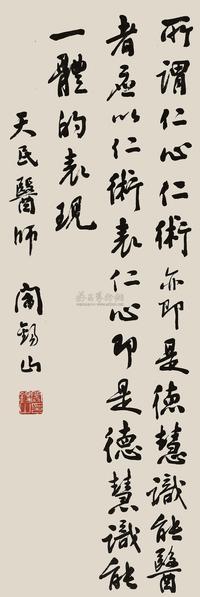 所謂仁心仁術亦即是德慧識能醫
者應以仁術表仁心即是德慧識能
一體的表現
天民醫師 閻錫山